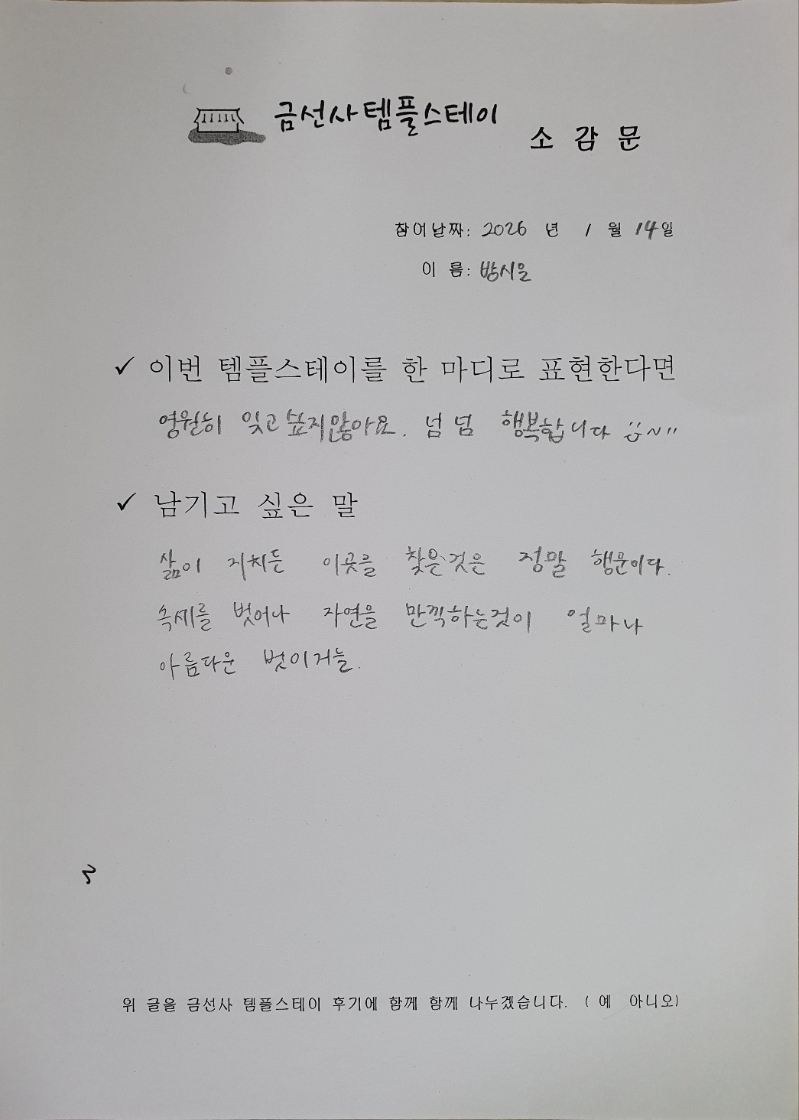 금선사템플스테이 소 감 문
참여날짜: 2026 년 1 월 14일
이 름: 방시은
✓ 이번 템플스테이를 한 마디로 표현한다면
영원히 잊고싶지않아요. 넘 넘 행복합니다
✓ 남기고 싶은 말
삶이 지치든 이곳을 찾은것은 정말 행운이다.
속세를 벗어나 자연을 만끽하는것이 얼마나
아름다운 벗이거늘.
위 글을 금선사 템플스테이 후기에 함께 함께 나누겠습니다. ( 예 아니오)